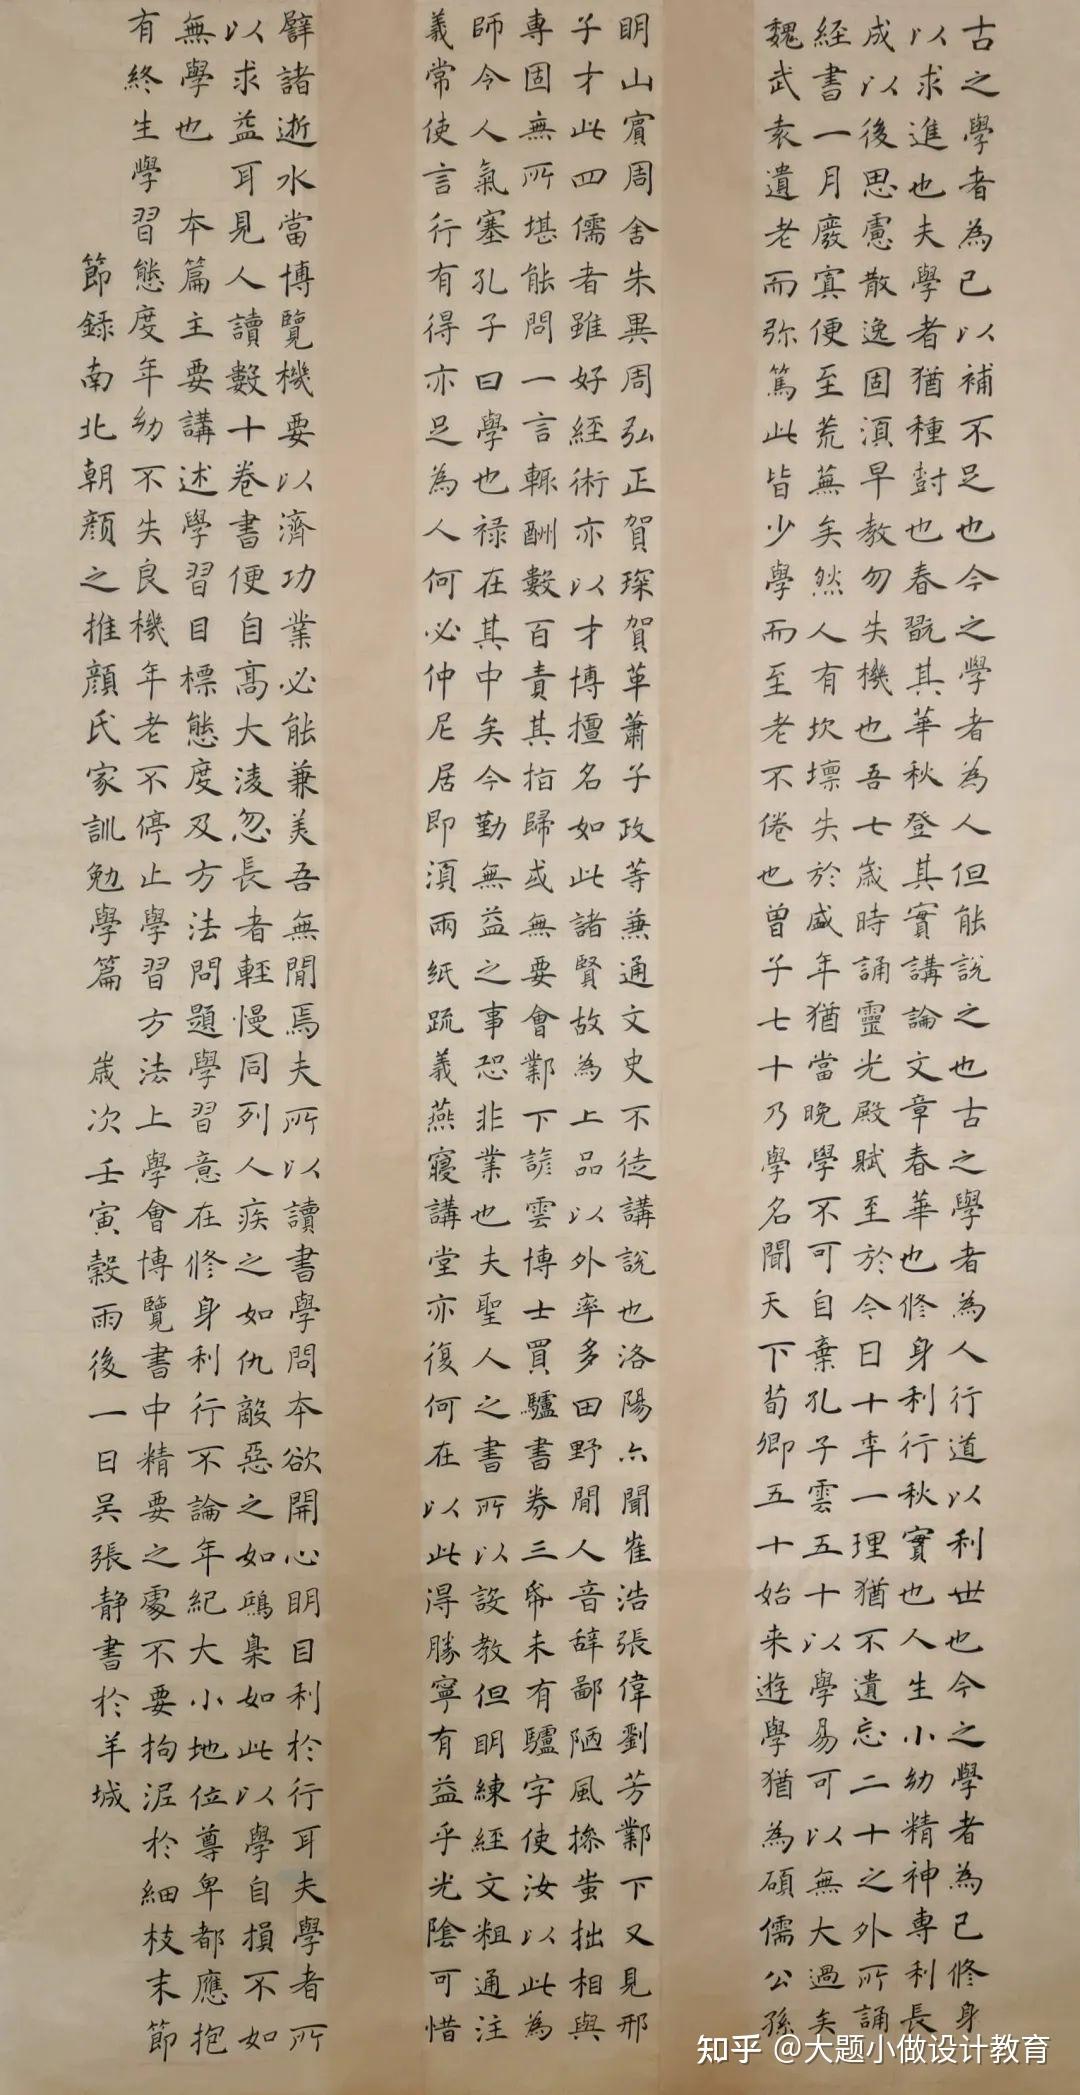 古之學者為己以補不足也今之學者為人但能說之也古之學者為人行道以利世也今之學者為己修身
以求進也夫學者猶種尌也春翫其華秋登其實講論文章春華也修身利行秋實也人生小幼精神専利長
成以後思慮散逸固湏早教勿失機也吾七歳時誦靈光殿賦至於今日十年一理猶不遺忘二十之外所誦
經書一月廢寘便至荒蕪矣然人有坎壈失於盛年猶當晚學不可自棄孔子雲五十以學易可以無大過矣
魏武袁遺老而弥篤此皆少學而至老不倦也曾子七十乃學名聞天下荀卿五十始来遊學猶為碩儒公孫
眀山賔周舍朱異周弘正賀琛賀革蕭子政等兼通文史不徒講說也洛陽亦聞崔浩張偉劉芳鄴下又見邢
子才此四儒者雖好經術亦以才博擅名如此諸賢故為上品以外率多田野閒人音辞鄙陋風摻蚩拙相與
專固無所堪能問一言輒酬數百責其指歸或無要會鄴下諺雲博士買驢書券三帋未有驢字使汝以此為
師令人氣塞孔子曰學也禄在其中矣今勤無益之事恐非業也夫聖人之書所以設教但眀練經文粗通注
義常使言行有得亦足為人何必仲尼居即湏兩紙疏義燕寢講堂亦復何在以此淂勝寧有益乎光陰可惜
譬諸逝水當博覽機要以濟功業必能兼美吾無閒焉夫所以讀書學問本欲開心眀目利於行耳夫學者所
以求益耳見人讀數十卷書便自高大淩忽長者輕慢同列人疾之如仇敵惡之如鴟梟如此以學自損不如
無學也　本篇主要講述學習目標態度及方法問題學習意在修身利行不論年紀大小地位尊卑都應抱
有終生學習態度年幼不失良機年老不停止學習方法上學會博覽書中精要之處不要拘泥於細枝末節
節録南北朝顔之推顔氏家訓勉學篇　歳次壬寅榖雨後一日吴張静書於羊城
知乎 @大题小做设计教育